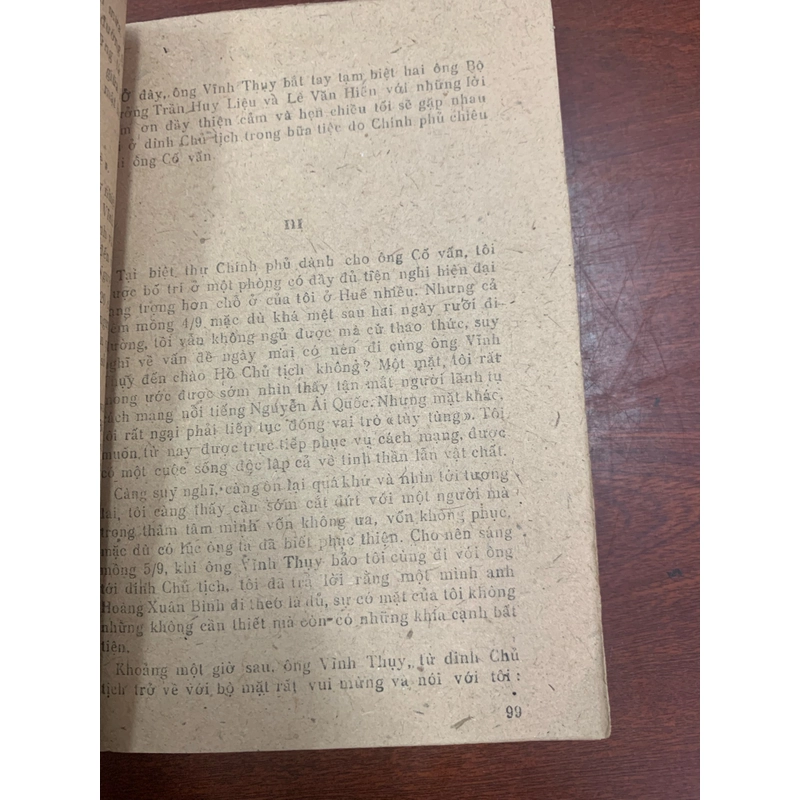 Ở đây, ông Vĩnh Thụy bắt tay tạm biệt hai ông Bộ
trưởng Trần Huy Liệu và Lê Văn Hiến với những lời
ơn đầy thiện cảm và hẹn chiều tối sẽ gặp nhau
ở dinh Chủ tịch trong bữa tiệc do Chính phủ chiêu
ông Cố vấn
III
Tại biệt thự Chính phủ dành cho ông Cố vấn, tôi
được bố trí ở một phòng có đầy đủ tiện nghi hiện đại
trọng hơn chỗ ở của tôi ở Huế nhiều. Nhưng cả
mồng 4/9 mặc dù khá mệt sau hai ngày rưỡi đi
đường, tôi vẫn không ngủ được mà cứ thao thức, suy
nghĩ về vấn đề ngày mai có nên đi cùng ông Vĩnh
Thụy đến chào Hồ Chủ tịch không? Một mặt, tôi rất
mong ước được sớm nhìn thấy tận mắt người lãnh tụ
cách mạng nổi tiếng Nguyễn Ái Quốc. Nhưng mặt khác,
tôi rất ngại phải tiếp tục đóng vai trò «tùy tùng». Tôi
muốn từ nay được trực tiếp phục vụ cách mạng, được
có một cuộc sống độc lập cả về tinh thần lẫn vật chất.
Càng suy nghĩ, càng ôn lại quá khứ và nhìn tới tương
lai, tôi càng thấy cần sớm cắt đứt với một người mà
trong thâm tâm mình vốn không ưa, vốn không phục,
mặc dù có lúc ông ta đã biết phục thiện. Cho nên sáng
mồng 5/9, khi ông Vĩnh Thụy bảo tôi cùng đi với ông
tới dinh Chủ tịch, tôi đã trả lời rằng một mình anh
Hoàng Xuân Bình đi theo là đủ, sự có mặt của tôi không
những không cần thiết mà còn có những khía cạnh bất
tiện.
Khoảng một giờ sau, ông Vĩnh Thụy, từ dinh Chủ
tịch trở về với bộ mặt rất vui mừng và nói với tôi :
99